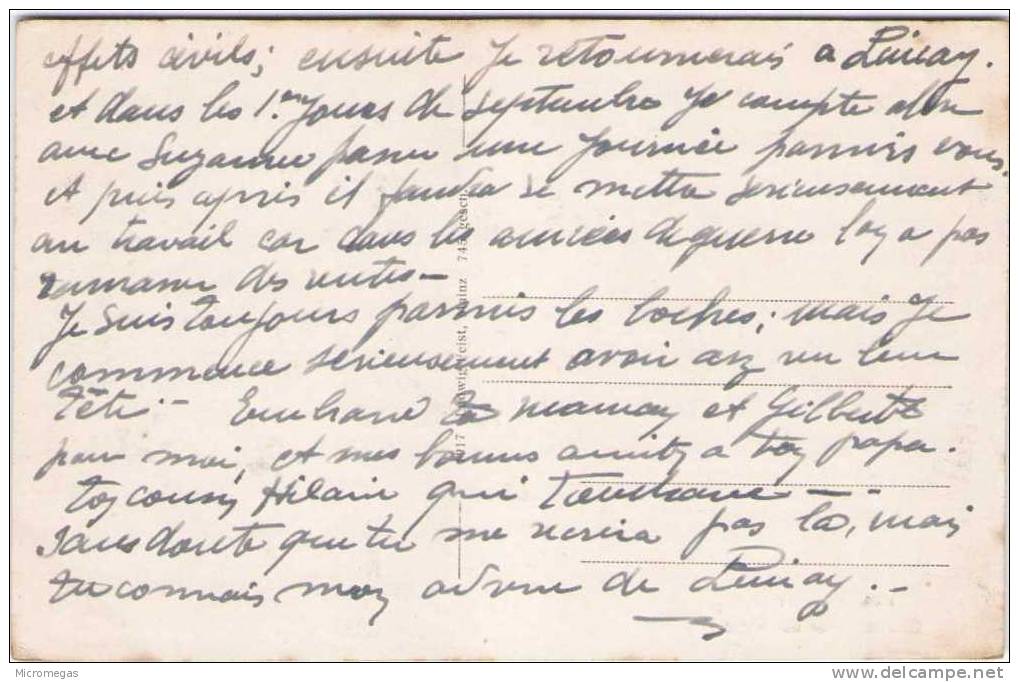 effets civils; ensuite je retournerais a Linay.
et dans les 1.ers jours de septembre je compte aller
avec Suzanne passer une journée parmis vous.
et puis apres il faudra se mettre serieusement
au travail car dans les années de guerre lon a pas
ramasser des rentes –
Je suis toujours parmis les boches; mais je
commence serieusement avoir assez vu leur
tête. – Embrasse ta maman et Gilbert
pour moi, et mes bonnes amitiés a ton papa.
ton cousin Hilaire qui t'embrasse – -
sans doute que tu me verra pas la, mais
tu connais mon adresse de Linay. –
1917 Ludwig Feist, Mainz 745 gesch.
Micromegas
www.delcampe.net